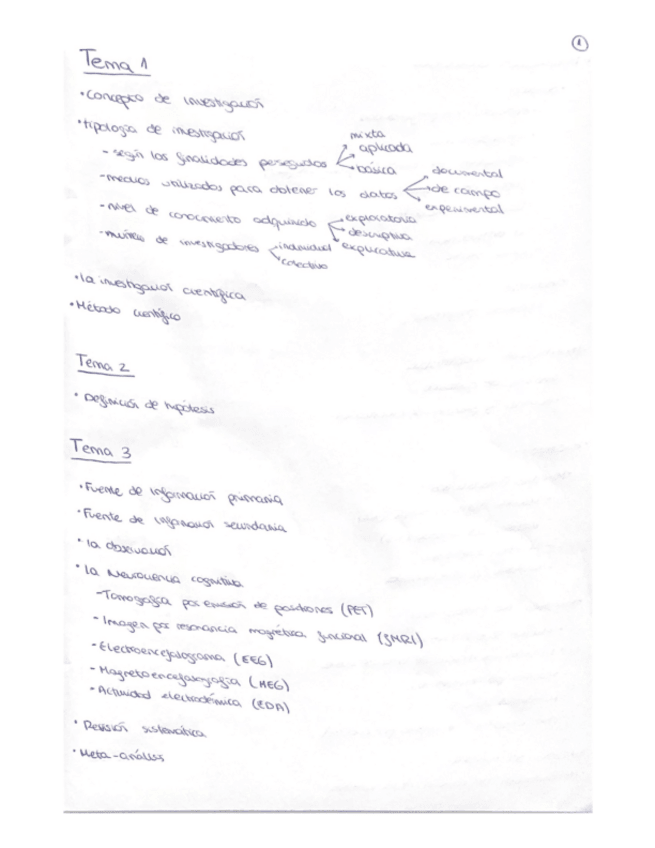 1
Tema 1
• Concepto de investigación
• tipología de investigación
- según las finalidades perseguidas
mixta
aplicada
básica
- medios utilizados para obtener los datos
documental
de campo
experimental
- nivel de conocimiento adquirido
exploratoria
descriptiva
explicativa
- número de investigadores
individual
colectivo
• la investigación científica
• Método científico
Tema 2
• Definición de hipótesis
Tema 3
• Fuente de información primaria
• Fuente de información secundaria
• la observación
• la Neurociencia cognitiva
- Tomografía por emisión de positrones (PET)
- Imagen por resonancia magnética funcional (fMRI)
- Electroencefalograma (EEG)
- Magnetoencefalografía (MEG)
- Actividad electrodérmica (EDA)
• Revisión sistemática
• Meta-análisis